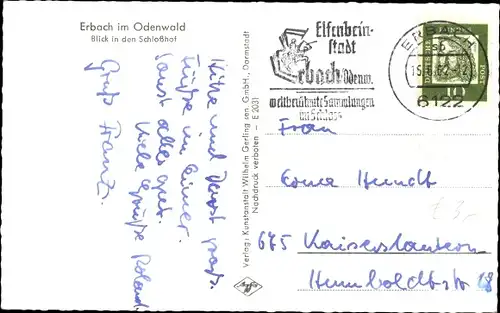 Erbach im Odenwald
Blick in den Schloßhof
Elfenbein-
stadt
Erbach Odenw.
weltberühmte Sammlungen
im Schloss
ERBACH
15.6.62
6122
DEUTSCHE
POST
10
Verlag: Kunstanstalt Wilhelm Gerling sen. GmbH., Darmstadt
Nachdruck verboten — E 2031
Hitze und Durst
Füße im Eimer.
Sonst alles gut.
Viele Grüße Roland
Gruß Franz.
Frau
Erna Hundt
675 Kaiserslautern
Humboldtstr 18